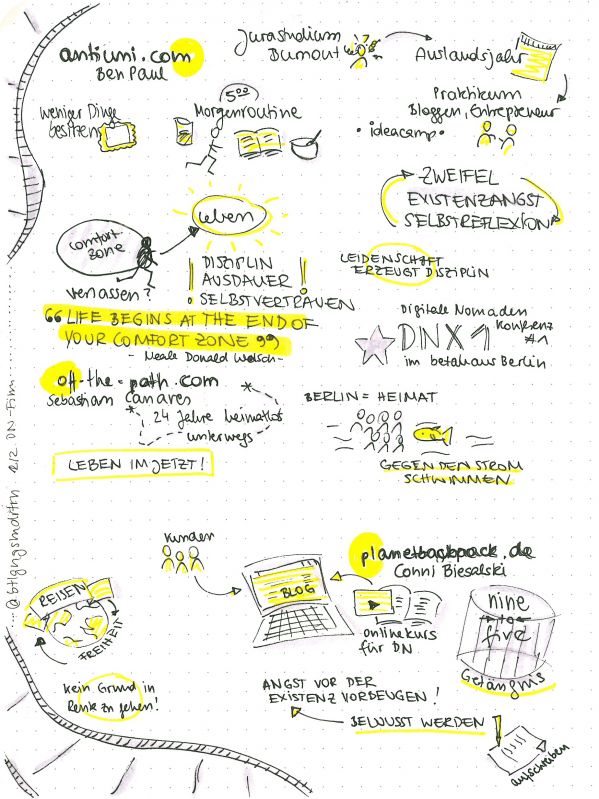 antiuni.com
Ben Paul
Jurastudium
Burnout
Auslandsjahr
Praktikum
Bloggen, Entrepreneur
• ideacamp •
weniger Dinge
besitzen
5:00
Morgenroutine
ZWEIFEL
EXISTENZANGST
SELBSTREFLEXION
comfort
zone
verlassen?
leben
! DISZIPLIN !
AUSDAUER
SELBSTVERTRAUEN
LEIDENSCHAFT
ERZEUGT DISZIPLIN
“LIFE BEGINS AT THE END OF
YOUR COMFORT ZONE”
- Neale Donald Walsch -
Digitale Nomaden
DNX1 Konferenz
#1
im betahaus Berlin
off-the-path.com
Sebastian Canaves
24 Jahre heimatlos
unterwegs
LEBEN IM JETZT!
BERLIN = HEIMAT
GEGEN DEN STROM
SCHWIMMEN
2/2 DN-Film
Kunden
BLOG
planetbackpack.de
Conni Biesalski
onlinekurs
für DN
nine
to
five
Gefängnis
REISEN
FREIHEIT
kein Grund in
Rente zu gehen!
ANGST VOR DER
EXISTENZ VORBEUGEN!
BEWUSST WERDEN!
aufschreiben